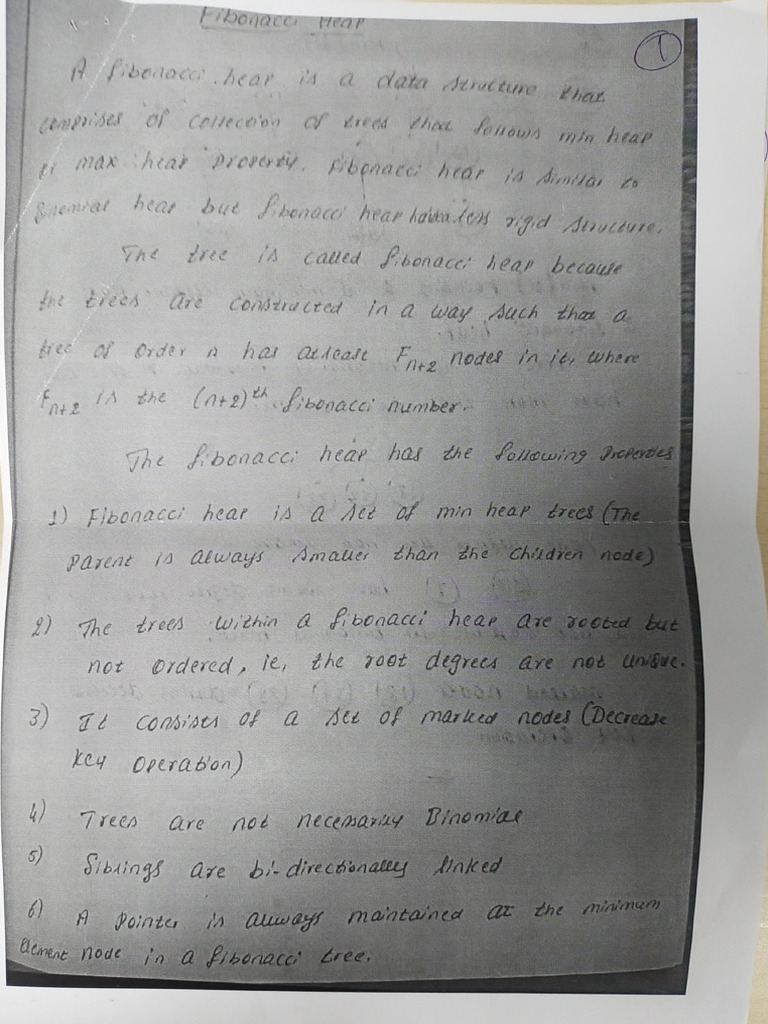 Fibonacci Heap
1
A fibonacci heap is a data structure that
comprises of collection of trees that follows min heap
or max heap property. Fibonacci heap is similar to
Binomial heap but fibonacci heap has a less rigid structure.
The tree is called fibonacci heap because
the trees are constructed in a way such that a
tree of order n has atleast Fn+2 nodes in it, where
Fn+2 is the (n+2)th fibonacci number.
The fibonacci heap has the following properties
1) Fibonacci heap is a set of min heap trees (The
parent is always smaller than the children node)
2) The trees within a fibonacci heap are rooted but
not ordered, ie, the root degrees are not unique.
3) It consists of a set of marked nodes (Decrease
key operation)
4) Trees are not necessarily Binomial
5) Siblings are bi-directionally linked
6) A pointer is always maintained at the minimum
element node in a fibonacci tree.